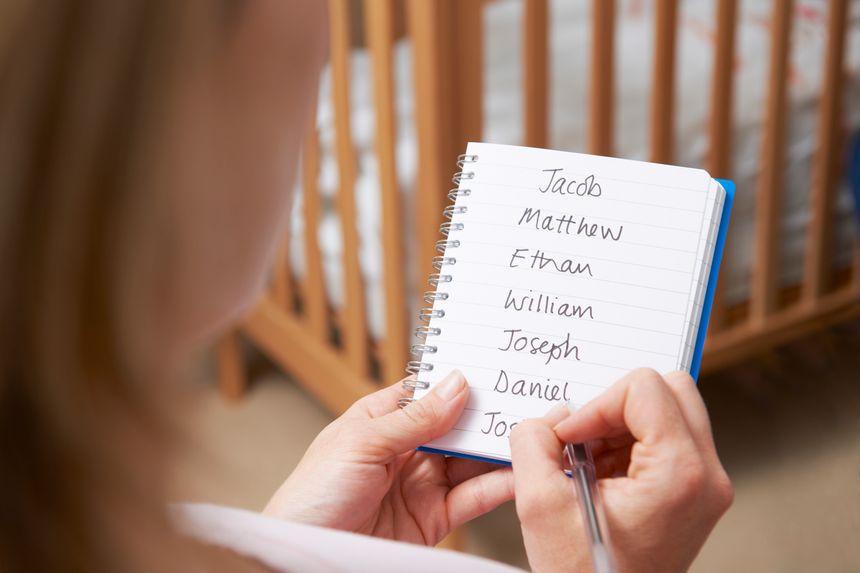 Jacob
Matthew
Ethan
William
Joseph
Daniel
Jos